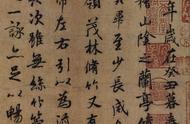 年歲在癸丑暮春
稽山陰之蘭亭
畢至少長咸
領茂林脩竹又
帶左右引以為流
次雖無絲竹
一詠亦足以暢